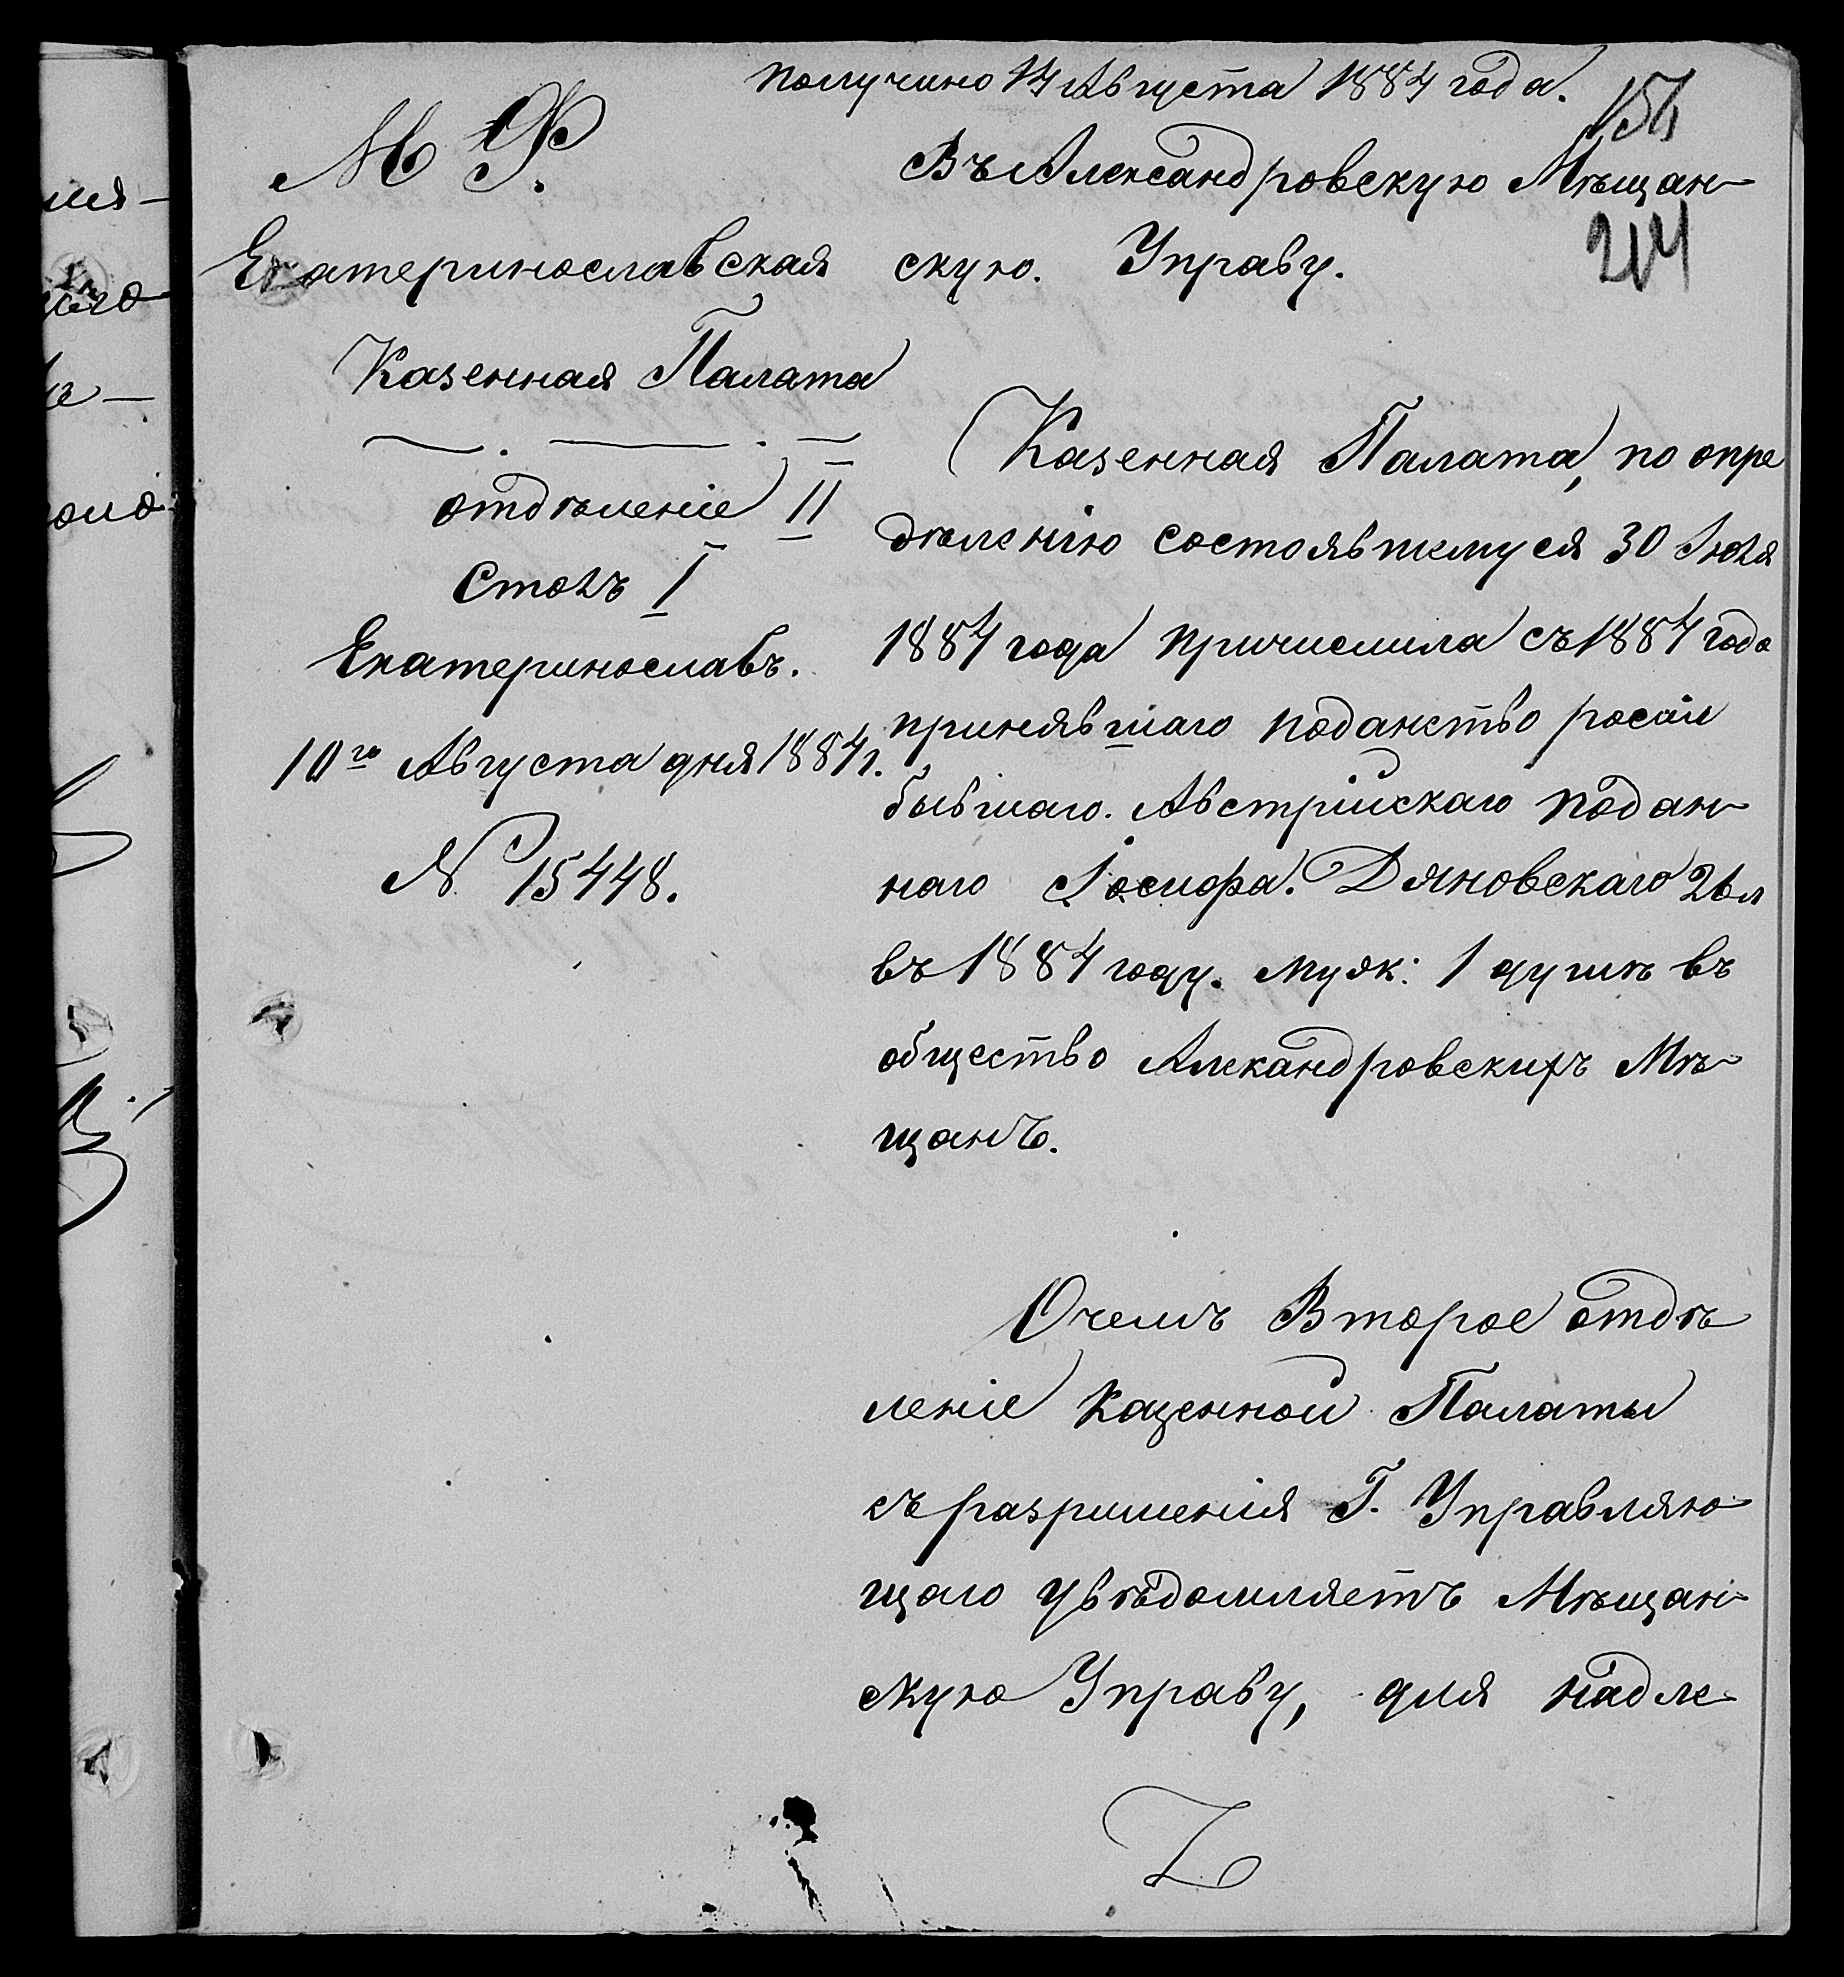 получино 14 Августа 1884 года.
156
214
М Ф.
Екатеринославская
Казенная Палата
отдѣленіе II
Столъ I
Екатеринославъ.
10го Августа дня 1884 г.
№ 15448.
Въ Александровскую Мѣщан-
скую. Управу.
Казенная Палата, по опре
дѣленію состоявшемуся 30 Іюля
1884 года причислила съ 1884 года
принявшаго поданство росіи
бывшаго. Австрійскаго подан-
наго Іосифа. Дяновскаго 26 л
въ 1884 году. муж: 1 душѣ въ
общество Алекандровскихъ Мѣ-
щанъ.
Очемъ Второе отдѣ
леніе Казенной Палаты
съ разришенія Г. Управляю-
щаго увѣдомляетъ Мѣщан-
скую Управу, для надле-